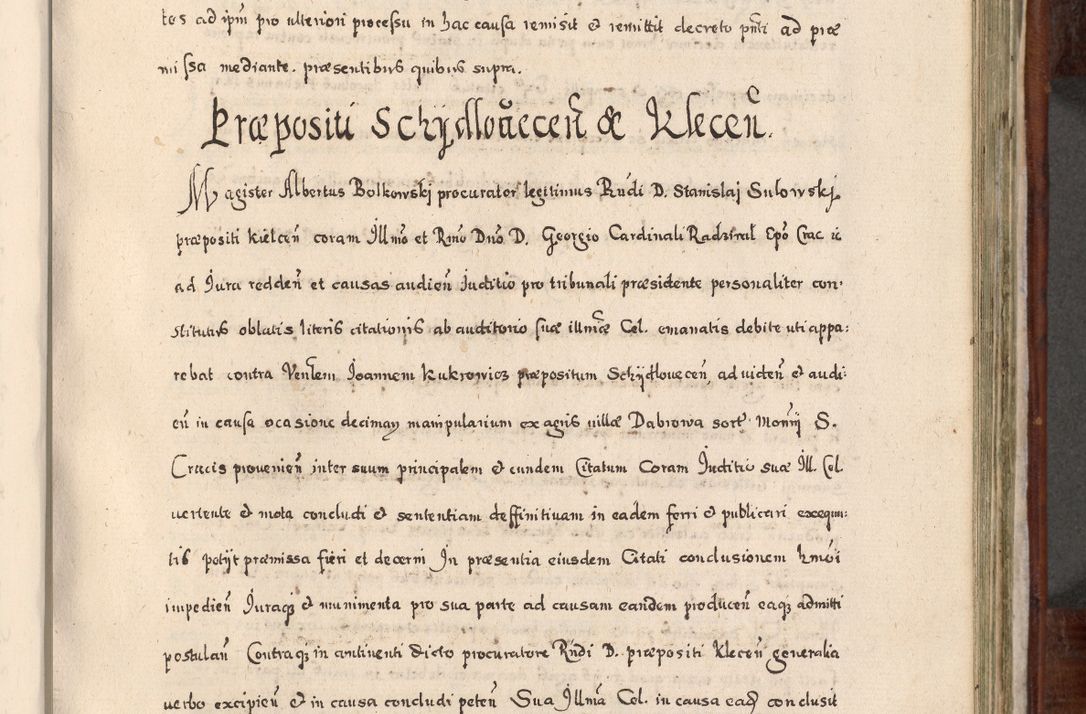 tes ad ipm̃ pro ulteriori processu in hac causa remisit et remittit decreto pn̄ti ad præ
missa mediante. præsentibus quibus supra.
Præpositi Schÿdlovecen̄ & Klecen̄.
Magister Albertus Bolkowskj procurator legitimus Rn̄di D. Stanislaj Sulowskj
præpositi kielcen̄ coram Illm̄o et Rm̄o Dn̄o D. Georgio Cardinali Radziwal Ep̄o Crac ec
ad Jura redden̄ et causas audien̄ Juditio pro tribunali præsidente personaliter con,
stitutus oblatis literis citationis ab auditorio suæ illm̄æ Cel. emanatis debite uti appa:
rebat contra Venlem Joannem kukrowicz præpositum Schÿdlovecen̄, ad viden̄ et audi:
en̄ in causa ocasione decimaꝝ manipularium ex agris villæ Dabrowa sort Monrij S.
Crucis provenien̄ inter suum principalem et eundem Citatum Coram Juditio suæ Ill. Cel.
vertente et mota concludi et sententiam deffinitivam in eadem ferri et publicari cæteqm:
tis potijt præmissa fieri et decerni In præsentia eiusdem Citati conclusionem hm̄oi
impedien̄ Juraqꝫ et munimenta pro sua parte ad causam eandem producen̄ eaqꝫ admitti
postulan̄ Contraqꝫ in continenti dicto procuratore Rn̄di D. præpositi klecen̄ generalia
verbo excipien̄ et in causa concludi peten̄ Sua Illm̄a Cel. in causa eadꝫ conclusit